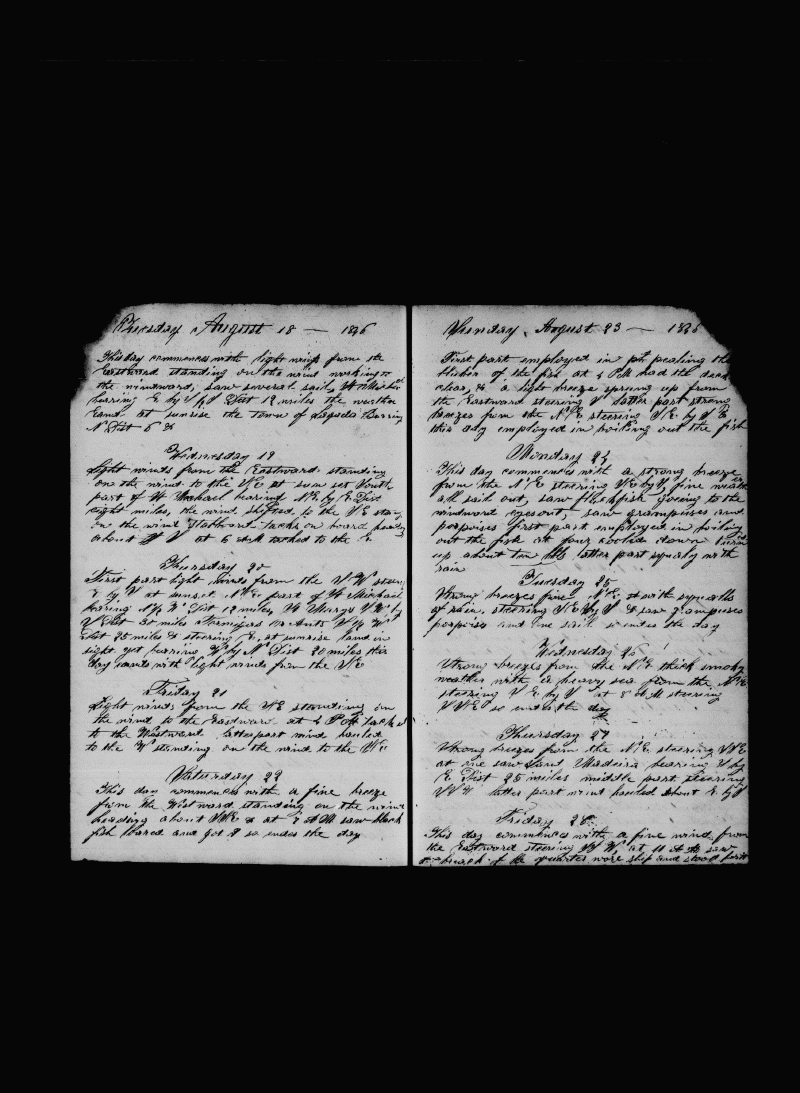 Tuesday August 18 — 1846
This day commences with light winds from the
Eastward standing on the wind working to
the windward, saw several sail, St Michaels
bearing E by S ½ S Dist 12 miles the weather
Land at sunrise the Town of Bearing
N Dist 6
Wednesday 19
Light winds from the Eastward standing
on the wind to the NE at sun set South
part of St Michael bearing NE by E Dist
eight miles, the wind shifted to the SE
on the wind Starboard tacks on board heading
about at 6 AM tacked to the E
Thursday 20
First part light winds from the SW steering
E by S at sunset NE part of St Michael
bearing Dist 12 miles, St Marys
Dist 30 miles Formigas or Ants
Dist 25 miles & steering E, at sunrise land in
sight yet bearing W by N Dist 20 miles this
day ends with light winds from the NE
Friday 21
Light winds from the NE standing on
the wind to the Eastward at 4 PM tacked
to the Westward latter part wind hauled
to the W standing on the wind to the NE
Saturday 22
This day commences with a fine breeze
from the Westward standing on the wind
heading about & at 7 AM saw black
fish lowered and got 1 so ends the day
Sunday August 23 — 1846
First part employed in peeling the
blubber of the fish at 4 PM had the deck
clear, & a light breeze sprung up from
the Eastward steering S latter part strong
breezes from the NE steering SE by S
this day employed in boiling out the fish
Monday 24
This day commences with a strong breeze
from the NE steering fine weather
all sail out, saw blackfish going to the
windward eyes out, saw grampuses and
porpoises first part employed in boiling
out the fish at four cooled down
up about ten latter part squaly with
rain
Tuesday 25
Strong breezes from NE, & with squalls
of rain, steering S & saw grampuses
porpoises and one sail so ends the day
Wednesday 26
Strong breezes from the NE thick smoky
weather with a heavy sea from the NE
steering S E by S at 8 AM steering
so ends the day
Thursday 27
Strong breezes from the NE steering
at one saw land Madeira bearing S by
E Dist 25 miles middle part steering
latter part wind hauled about E by S
Friday 28
This day commences with a fine wind from
the Eastward steering at 11 AM saw
of the quarter wore ship and stood